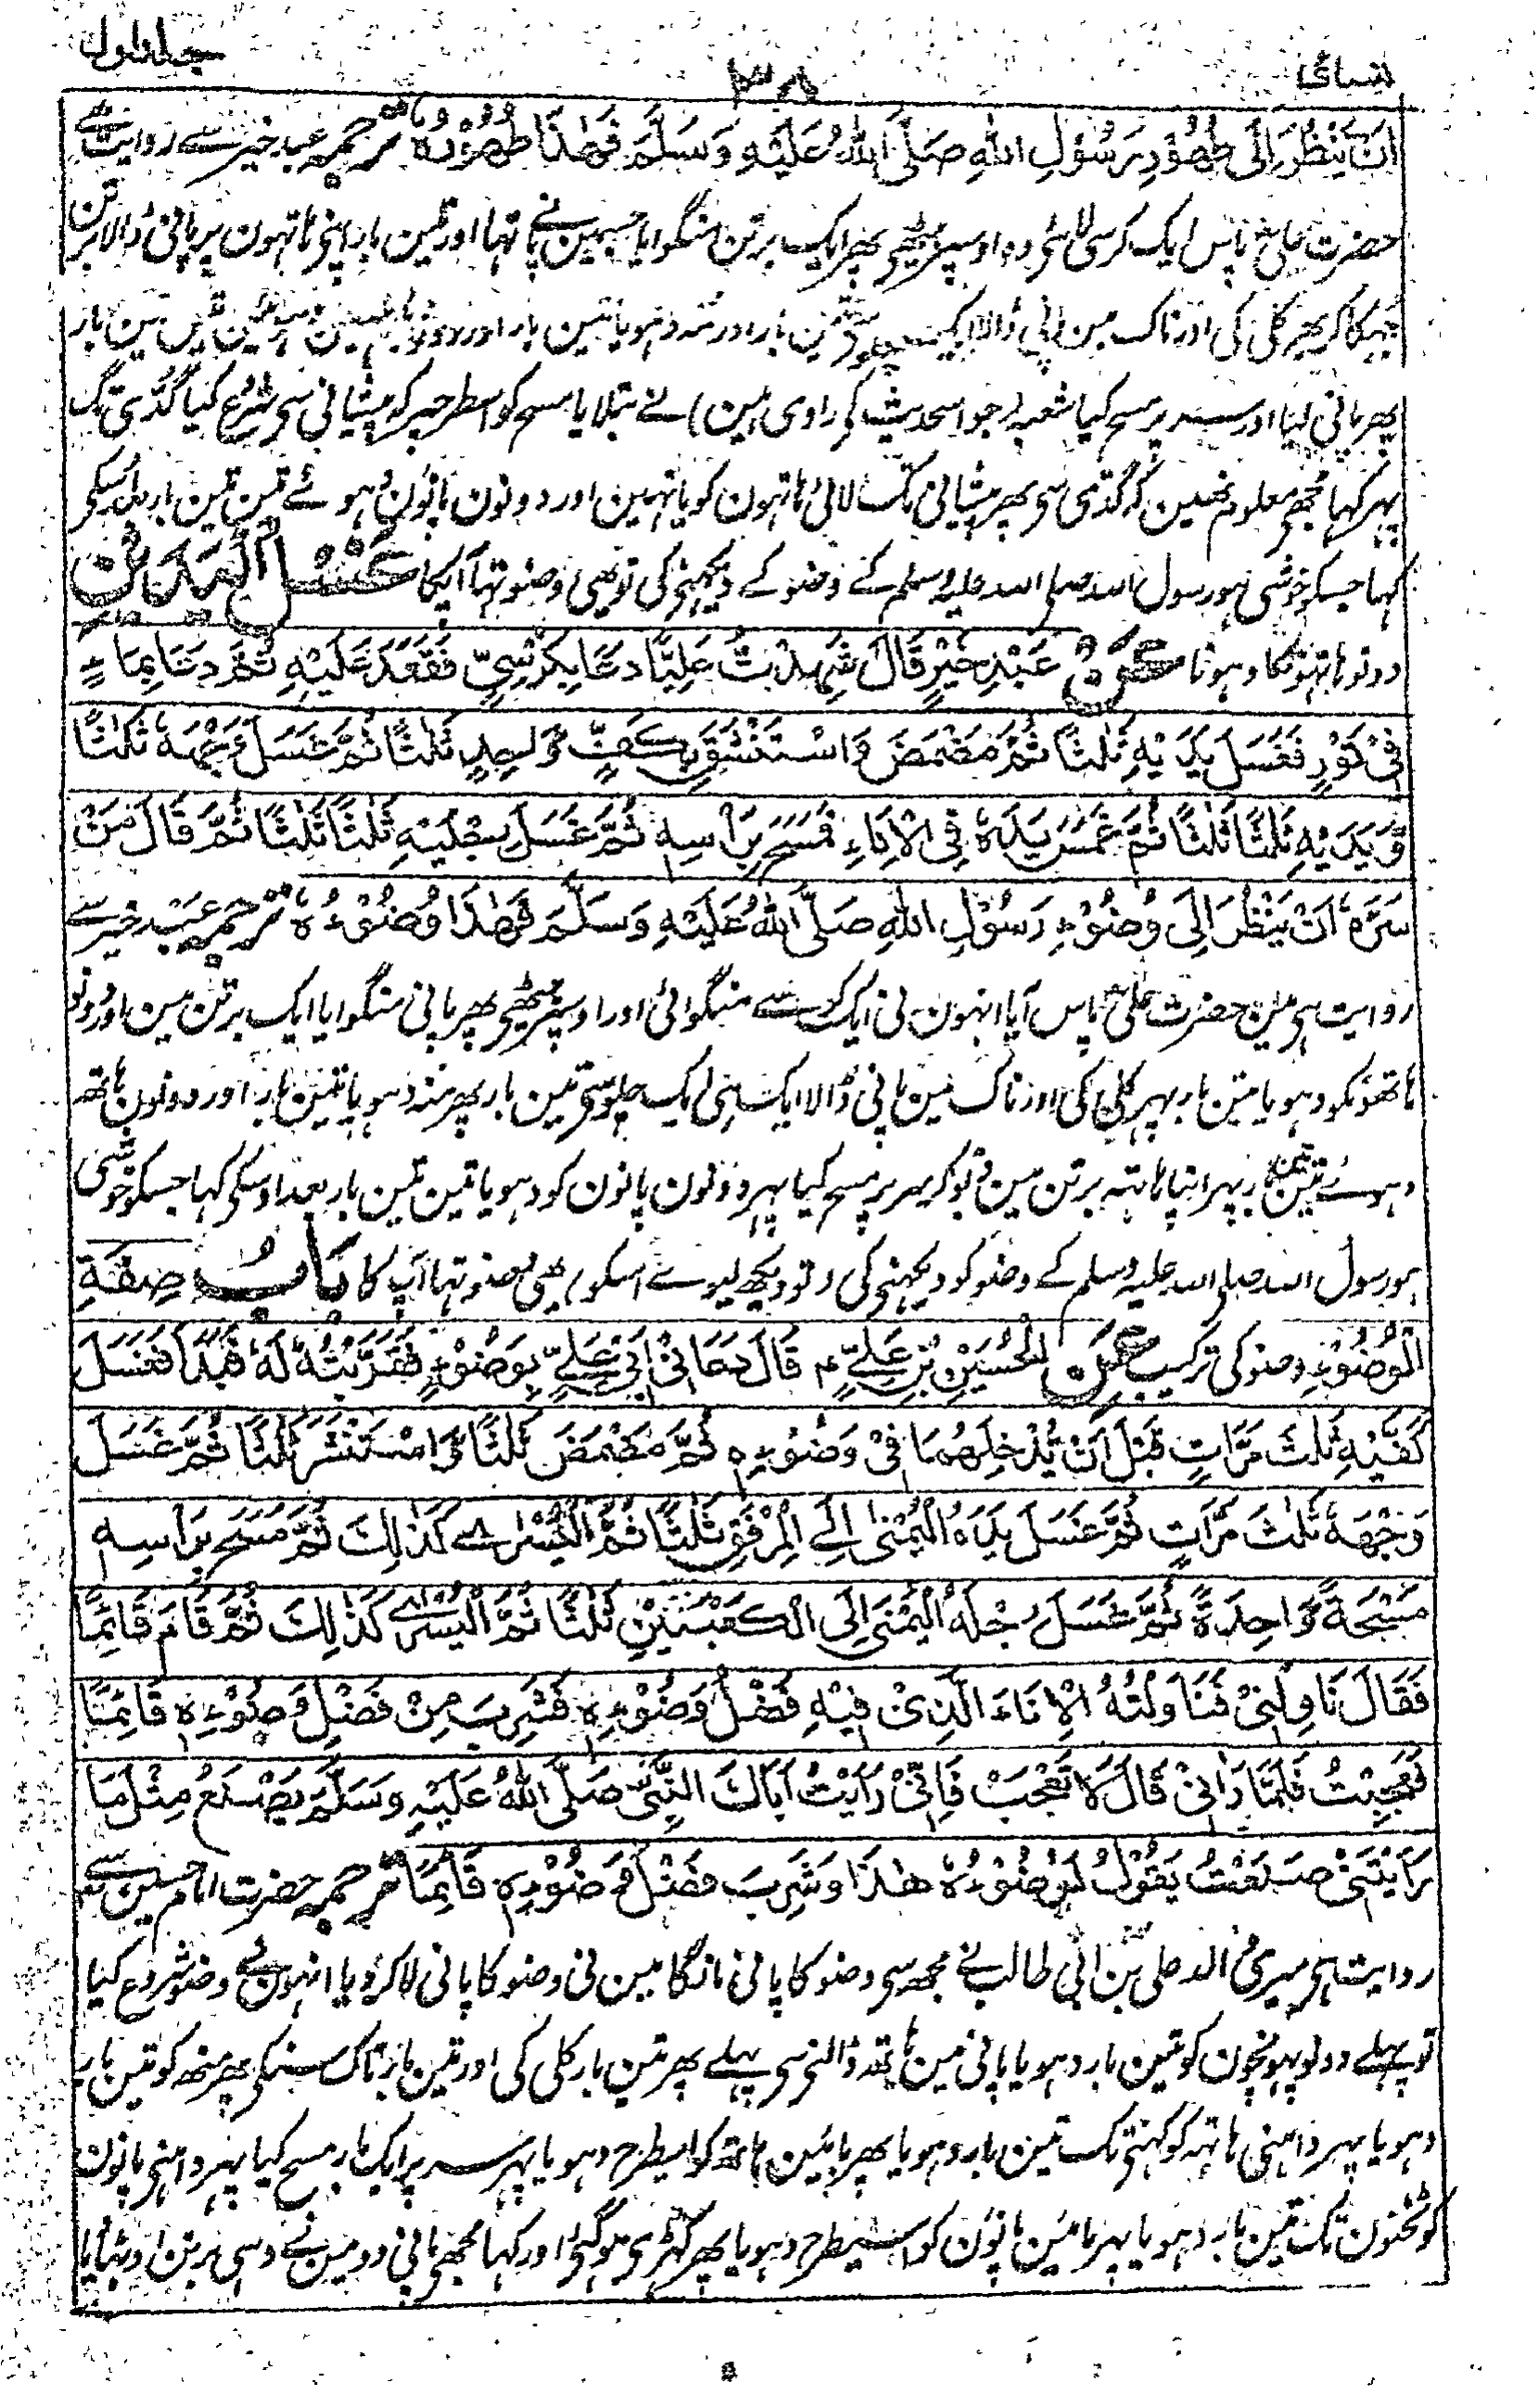 نسائی ۳۸ جلد اول
اَنْ يَّنْظُرَ اِلٰى طُهُوْرِ رَسُوْلِ اللهِ صَلَّى اللهُ عَلَيْهِ وَسَلَّمَ فَهٰذَا طُهُوْرُهٗ ترجمہ عبد خیر سے روایت ہے
حضرت علیؓ پاس ایک کرسی لائی وہ اوسپر بیٹھی پھر ایک برتن منگوایا جسمین پانی تہا اور تین بار اپنی ہاتہون پر پانی ڈالا برتن
جہکا کر پھر کلی کی اور ناک مین پانی ڈالا ایک چلو سی تین بار اور منہ دہویا تین بار اور دونو تین تین بار
پھر پانی لیا اور سر پر مسح کیا شعبہ (جو اسحدیث کی راوی ہین) نے بتلایا مسح کو اسطرحپر کہ پیشانی سی شروع کیا گدی تک
پہر کہا مجھی معلوم نہین کہ گدی سی پھر پیشانی تک لائی ہاتہون کو یا نہین اور دونون پانون دہوئے تین تین بار بعد اسکی
کہا جسکو خوشی ہو رسول اللہ صلی اللہ علیہ وسلم کے وضو کے دیکھنی کی تو یہی وضو تہا آپکا غَسْلُ الْيَدَيْنِ
دونو ہاتہونکا دہونا عَنْ عَبْدِ خَيْرٍ قَالَ شَهِدْتُ عَلِيًّا دَعَا بِكُرْسِيٍّ فَقَعَدَ عَلَيْهِ ثُمَّ دَعَا بِمَاءٍ
فِىْ تَوْرٍ فَغَسَلَ يَدَيْهِ ثَلٰثًا ثُمَّ مَضْمَضَ وَاسْتَنْشَقَ بِكَفٍّ وَّاحِدٍ ثَلٰثًا ثُمَّ غَسَلَ وَجْهَهٗ ثَلٰثًا
وَّيَدَيْهِ ثَلٰثًا ثَلٰثًا ثُمَّ غَمَسَ يَدَهٗ فِى الْاِنَاءِ فَمَسَحَ بِرَاْسِهٖ ثُمَّ غَسَلَ رِجْلَيْهِ ثَلٰثًا ثَلٰثًا ثُمَّ قَالَ مَنْ
سَرَّهٗ اَنْ يَّنْظُرَ اِلٰى وُضُوْءِ رَسُوْلِ اللهِ صَلَّى اللهُ عَلَيْهِ وَسَلَّمَ فَهٰذَا وُضُوْءُهٗ ترجمہ عبد خیر سے
روایت ہی مین حضرت علیؓ پاس آیا انہون نی ایک کرسے منگوائی اور اوسپر بیٹھی پھر پانی منگوایا ایک برتن مین اور دونو
ہاتھونکو دہویا تین بار پہر کلی کی اور ناک مین پانی ڈالا ایک ہی ایک چلو سی تین بار پھر منہ دہویا تین بار اور دونون ہاتھ
دہوئے تین تین بار پہر اپنا ہاتہہ برتن مین ڈبو کر سر پر مسح کیا پہر دونون پانون کو دہویا تین تین بار بعد اوسکی کہا جسکو خوشی
ہو رسول اللہ صلی اللہ علیہ وسلم کے وضو کو دیکھنی کی وہ تو دیکھ لیوے اسکو یہی وضو تہا آپ کا بَابُ صِفَةِ
الْوُضُوْءِ وضو کی ترکیب عَنِ الْحُسَيْنِ بْنِ عَلِيٍّ قَالَ دَعَانِىْ اَبِىْ عَلِيٌّ بِوَضُوْءٍ فَقَرَّبْتُهٗ لَهٗ فَبَدَاَ فَغَسَلَ
كَفَّيْهِ ثَلٰثَ مَرَّاتٍ قَبْلَ اَنْ يُّدْخِلَهُمَا فِىْ وَضُوْءِهٖ ثُمَّ مَضْمَضَ ثَلٰثًا وَّاسْتَنْثَرَ ثَلٰثًا ثُمَّ غَسَلَ
وَجْهَهٗ ثَلٰثَ مَرَّاتٍ ثُمَّ غَسَلَ يَدَهُ الْيُمْنٰى اِلَى الْمِرْفَقِ ثَلٰثًا ثُمَّ الْيُسْرٰى كَذٰلِكَ ثُمَّ مَسَحَ بِرَاْسِهٖ
مَسْحَةً وَّاحِدَةً ثُمَّ غَسَلَ رِجْلَهُ الْيُمْنٰى اِلَى الْكَعْبَيْنِ ثَلٰثًا ثُمَّ الْيُسْرٰى كَذٰلِكَ ثُمَّ قَامَ قَائِمًا
فَقَالَ نَاوِلْنِىْ فَنَاوَلْتُهُ الْاِنَاءَ الَّذِىْ فِيْهِ فَضْلُ وَضُوْءِهٖ فَشَرِبَ مِنْ فَضْلِ وَضُوْءِهٖ قَائِمًا
فَعَجِبْتُ فَلَمَّا رَاٰنِىْ قَالَ لَا تَعْجَبْ فَاِنِّىْ رَاَيْتُ اَبَاكَ النَّبِىَّ صَلَّى اللهُ عَلَيْهِ وَسَلَّمَ يَصْنَعُ مِثْلَ مَا
رَاَيْتَنِىْ صَنَعْتُ يَقُوْلُ لِوُضُوْءِهٖ هٰذَا وَشَرِبَ فَضْلَ وَضُوْءِهٖ قَائِمًا ترجمہ حضرت امام حسین سے
روایت ہی میری والد علی بن ابی طالب نے مجھ سی وضو کا پانی مانگا مین نی وضو کا پانی لا کر دیا انہون نے وضو شروع کیا
تو پہلے دونو پہونچون کو تین بار دہویا پانی مین ہاتھ ڈالنی سی پہلے پھر تین بار کلی کی اور تین بار ناک سنکی پھر منھ کو تین بار
دہویا پہر داہنی ہاتہہ کو کہنی تک تین بار دہویا پھر بائین ہاتھ کو اسیطرح دہویا پہر سر پر ایک بار مسح کیا پہر داہنی پانون
کو ٹخنون تک تین بار دہویا پہر بائین پانون کو اسیطرح دہویا پھر کھڑی ہو گئی اور کہا مجھی پانی دو مین نے وہی برتن اوٹہایا